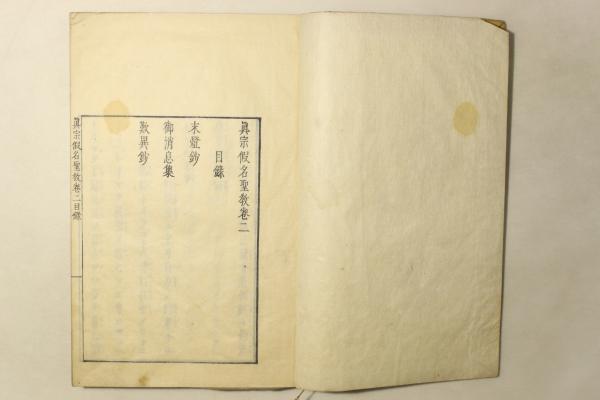 眞宗假名聖敎卷二
目錄
末燈鈔
御消息集
歎異鈔
眞宗假名聖敎卷二目錄